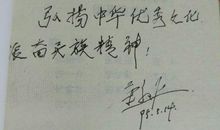 弘扬中华优秀文化
振奋民族精神！
95.5.14.